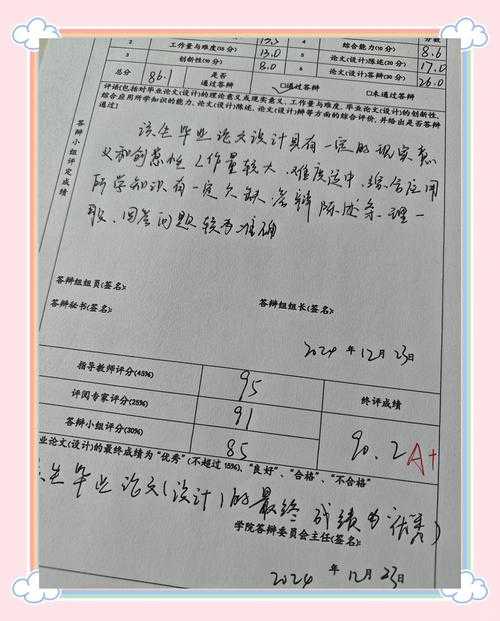 分数
2 工作量与难度(15分) 13.5 4 综合能力(10分) 8.6
3 创新性(10分) 8.0 5 论文(设计)陈述(20分) 17.0
6 论文(设计)答辩(30分) 26.0
总分 86.1 是否通过答辩 ☑通过答辩 □未通过答辩
评语(包括对毕业论文(设计)的理论意义或现实意义、工作量与难度、毕业论文(设计)的创新性、
综合应用所学知识的能力、论文(设计)陈述、论文(设计)答辩等方面的综合评价,并给出是否答辩
通过)
答辩小组评定成绩
该生毕业论文设计具有一定的现实意
义和创意性,工作量较大,难度适中,综合应用
所学知识有一定欠缺,答辩陈述条理一
般,回答问题较为准确
答辩组组员(签名):
答辩秘书(签名): 答辩组组长(签名):
2024 年 12 月 23 日
指导教师评分(45%) 95
评阅专家评分(25%) 91 终评成绩
答辩小组评分(30%) 85 90.2 A+
业论文(设计)的最终成绩为“优秀”(不超过15%)、“良好”、“合格”、“不合格”
生毕业论文(设计)的最终成绩为(优秀)
学院答辩委员会主任(签名):
2024 年 12 月 23 日